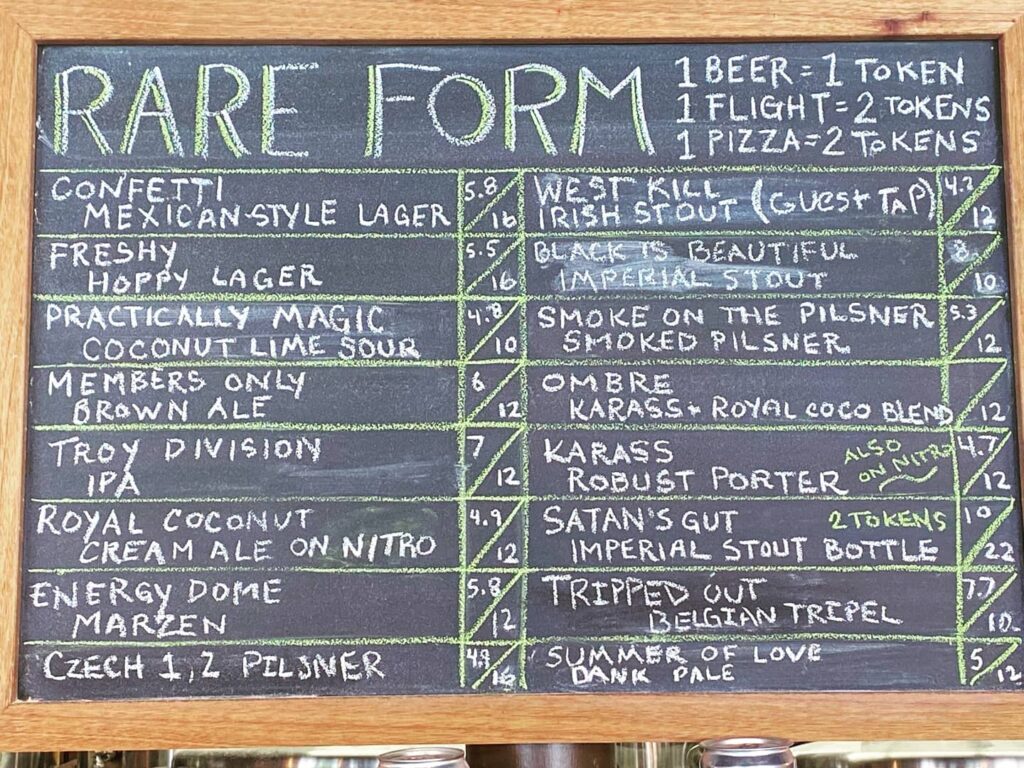 RARE FORM
1 BEER = 1 TOKEN
1 FLIGHT = 2 TOKENS
1 PIZZA = 2 TOKENS
CONFETTI
MEXICAN-STYLE LAGER
5.8/16
FRESHY
HOPPY LAGER
5.5/16
PRACTICALLY MAGIC
COCONUT LIME SOUR
4.8/10
MEMBERS ONLY
BROWN ALE
6/12
TROY DIVISION
IPA
7/12
ROYAL COCONUT
CREAM ALE ON NITRO
4.9/12
ENERGY DOME
MARZEN
5.8/12
CZECH 1, 2 PILSNER
4.9/16
WEST KILL
IRISH STOUT (GUEST TAP)
4.2/12
BLACK IS BEAUTIFUL
IMPERIAL STOUT
8/10
SMOKE ON THE PILSNER
SMOKED PILSNER
5.3/12
OMBRE
KARASS + ROYAL COCO BLEND
/12
KARASS
ROBUST PORTER
ALSO
ON NITRO
4.7/12
SATAN'S GUT 2 TOKENS
IMPERIAL STOUT BOTTLE
10/22
TRIPPED OUT
BELGIAN TRIPEL
7.7/10
SUMMER OF LOVE
DANK PALE
5/12